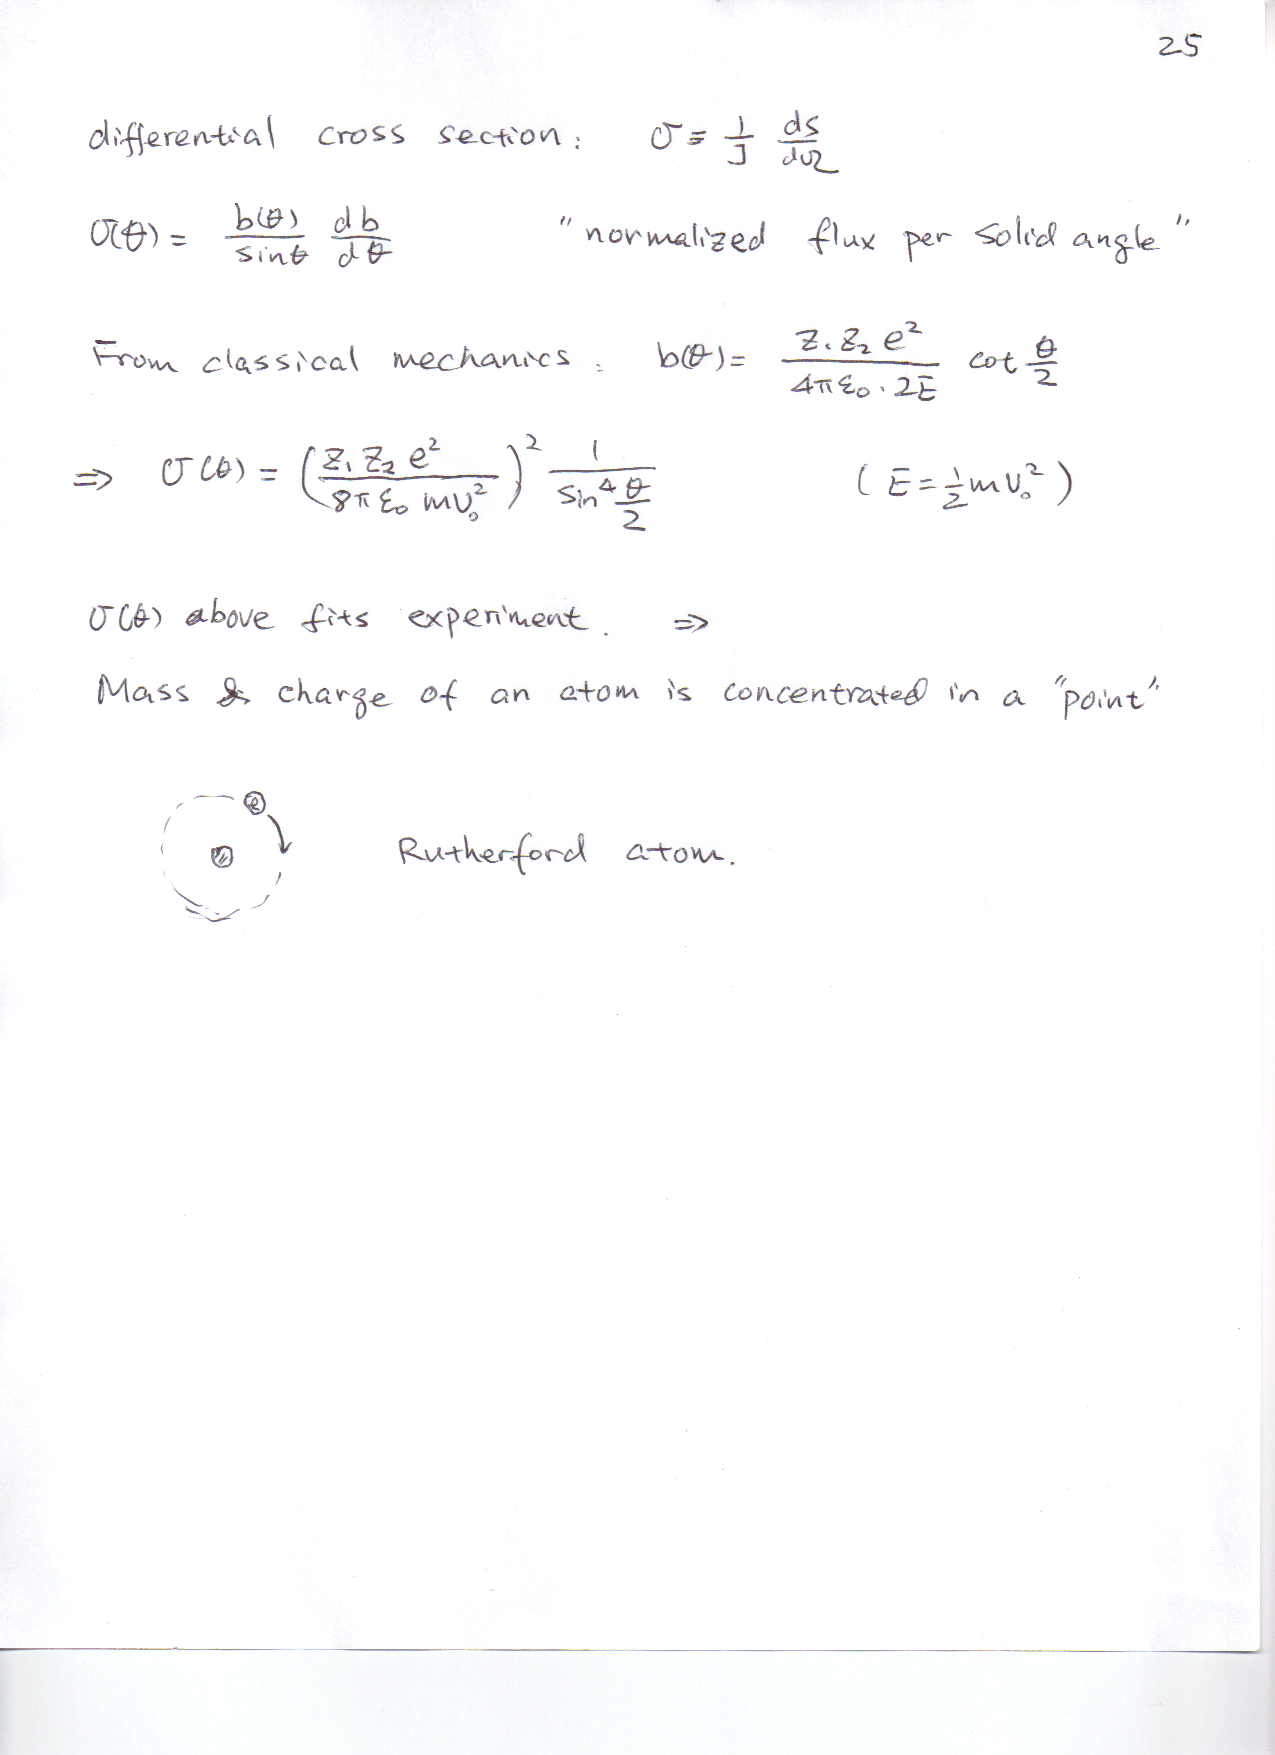 25
differential cross section: σ = 1/J ds/dΩ
σ(θ) = b(θ)/sinθ db/dθ "normalized flux per solid angle"
From classical mechanics: b(θ) = Z₁Z₂e²/4πε₀·2E cot θ/2
⇒ σ(θ) = (Z₁Z₂e²/8πε₀mv₀²)² 1/sin⁴ θ/2 (E = ½mv₀²)
σ(θ) above fits experiment. ⇒
Mass & charge of an atom is concentrated in a "point"
e
Rutherford atom.